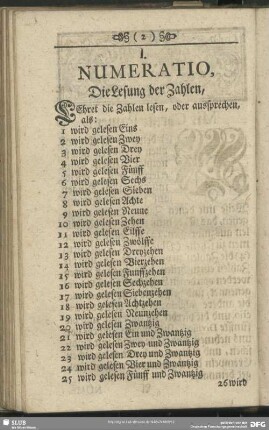 ( 2 )
I.
NUMERATIO,
Die Lesung der Zahlen,
LEhret die Zahlen lesen, oder aussprechen,
als:
1 wird gelesen Eins
2 wird gelesen Zwey
3 wird gelesen Drey
4 wird gelesen Vier
5 wird gelesen Fünff
6 wird gelesen Sechs
7 wird gelesen Sieben
8 wird gelesen Achte
9 wird gelesen Neune
10 wird gelesen Zehen
11 wird gelesen Eilffe
12 wird gelesen Zwölffe
13 wird gelesen Dreyzehen
14 wird gelesen Vierzehen
15 wird gelesen Funffzehen
16 wird gelesen Sechzehen
17 wird gelesen Siebenzehen
18 wird gelesen Achtzehen
19 wird gelesen Neunzehen
20 wird gelesen Zwantzig
21 wird gelesen Ein und Zwantzig
22 wird gelesen Zwey und Zwantzig
23 wird gelesen Drey und Zwantzig
24 wird gelesen Vier und Zwantzig
25 wird gelesen Fünff und Zwantzig
26 wird
SLUB
DFG